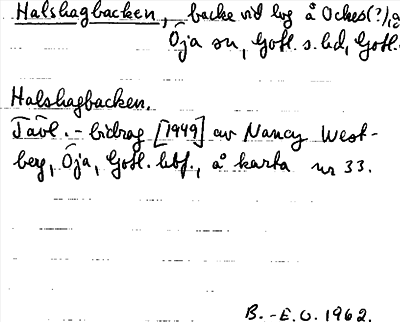 Halshagbacken, backe vid lvg å Ockes(?),
Öja sn, Gotl. s. hd, Gotl.
Halshagbacken.
Tävl.-bidrag [1949] av Nancy West-
berg, Öja, Gotl. lbf., å karta nr 33.
B.-E.O. 1962.